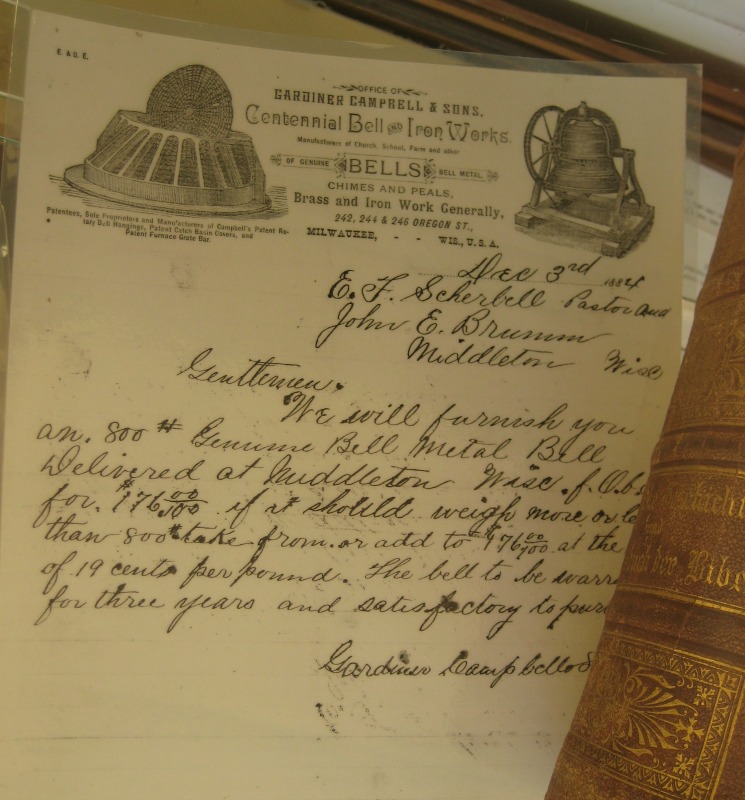 E. & O. E.
OFFICE OF
GARDINER CAMPBELL & SONS,
Centennial Bell AND Iron Works.
Manufacturers of Church, School, Farm and other
OF GENUINE BELLS BELL METAL.
CHIMES AND PEALS,
Brass and Iron Work Generally,
242, 244 & 246 OREGON ST.,
MILWAUKEE, - - WIS., U.S.A.
Patentees, Sole Proprietors and Manufacturers of Campbell's Patent Ro-
tary Bell Hangings, Patent Catch Basin Covers, and
Patent Furnace Grate Bar.
Dec 3rd 1884
E. F. Scherbell Pastor and
John E. Brumm
Middleton Wisc
Gentlemen.
We will furnish you
an. 800 # Genuine Bell Metal Bell
Delivered at Middleton Wisc. f.O.b
for. $176 00/100 if it should weigh more or le
than 800 # take from. or add to $176 00/100 at the
of 19 cents per pound. The bell to be warr
for three years and satisfactory to pur
Gardiner Campbell & S
der Bibe